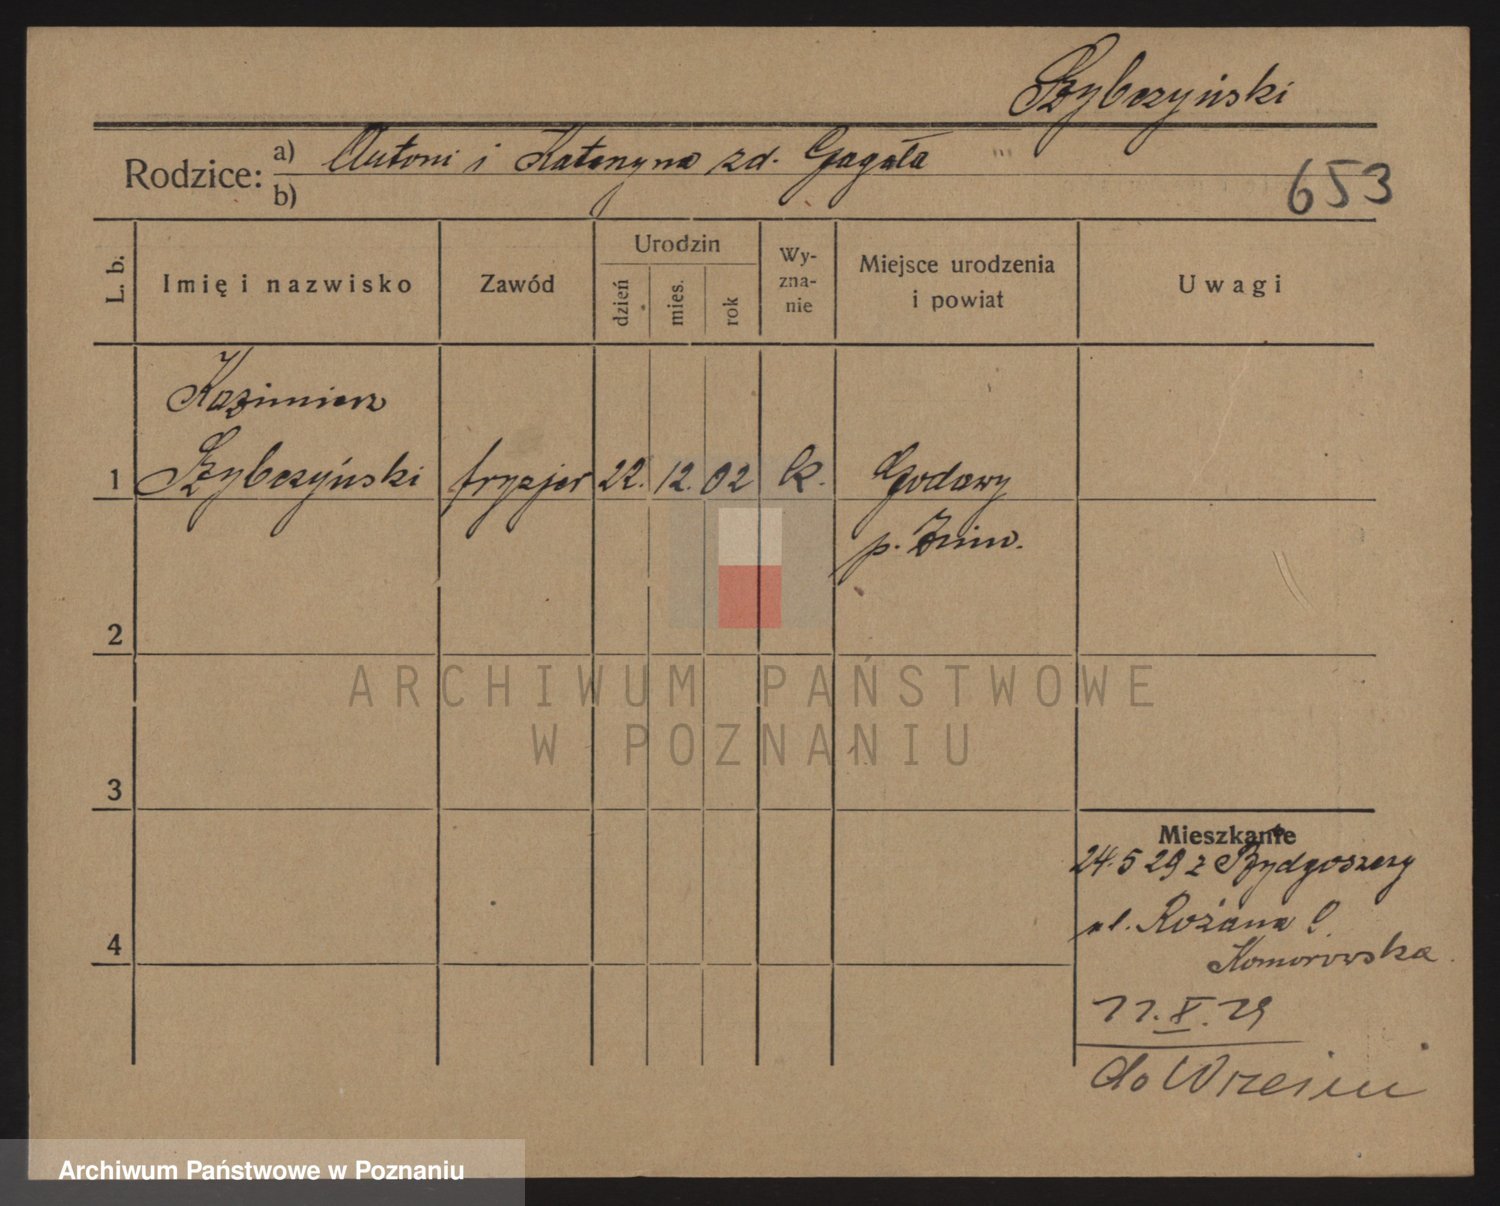 Szybczyński
Rodzice: a) Antoni i Katarzyna zd. Gagała
b)
653
L. b.
Imię i nazwisko
Zawód
Urodzin
dzień
mies.
rok
Wy-
zna-
nie
Miejsce urodzenia
i powiat
Uwagi
Kazimierz
1 Szybczyński fryzjer 22. 12. 02 k. Godawy
p. Żnin.
2
ARCHIWUM PAŃSTWOWE
W POZNANIU
3
Mieszkanie
24.5 29 z Bydgoszczy
ul. Rożana
4
Komorowska
11.X.29
do Wrześni
Archiwum Państwowe w Poznaniu